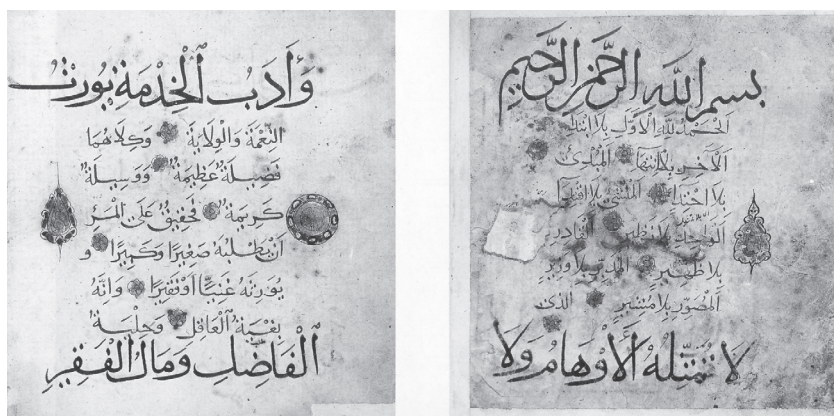 بسم الله الرحمن الرحيم
الحمد لله الأول بلا ابتداء
الآخر بلا انتهاء المبدئ
بلا احتذاء المنشئ بلا اقتداء
الواحد بلا نظير القادر
بلا ظهير المدبر بلا وزير
المصور بلا مشير الذي
لا تمثله الأوهام ولا
وأدب الخدمة يورث
النعمة والولاية وكلاهما
فضيلة عظيمة ووسيلة
كريمة فحقيق على المرء
أن يطلبه صغيرا وكبيرا و
غنيا أو فقيرا وإنه
بغية العاقل وحلية
الفاضل ومال الفقير